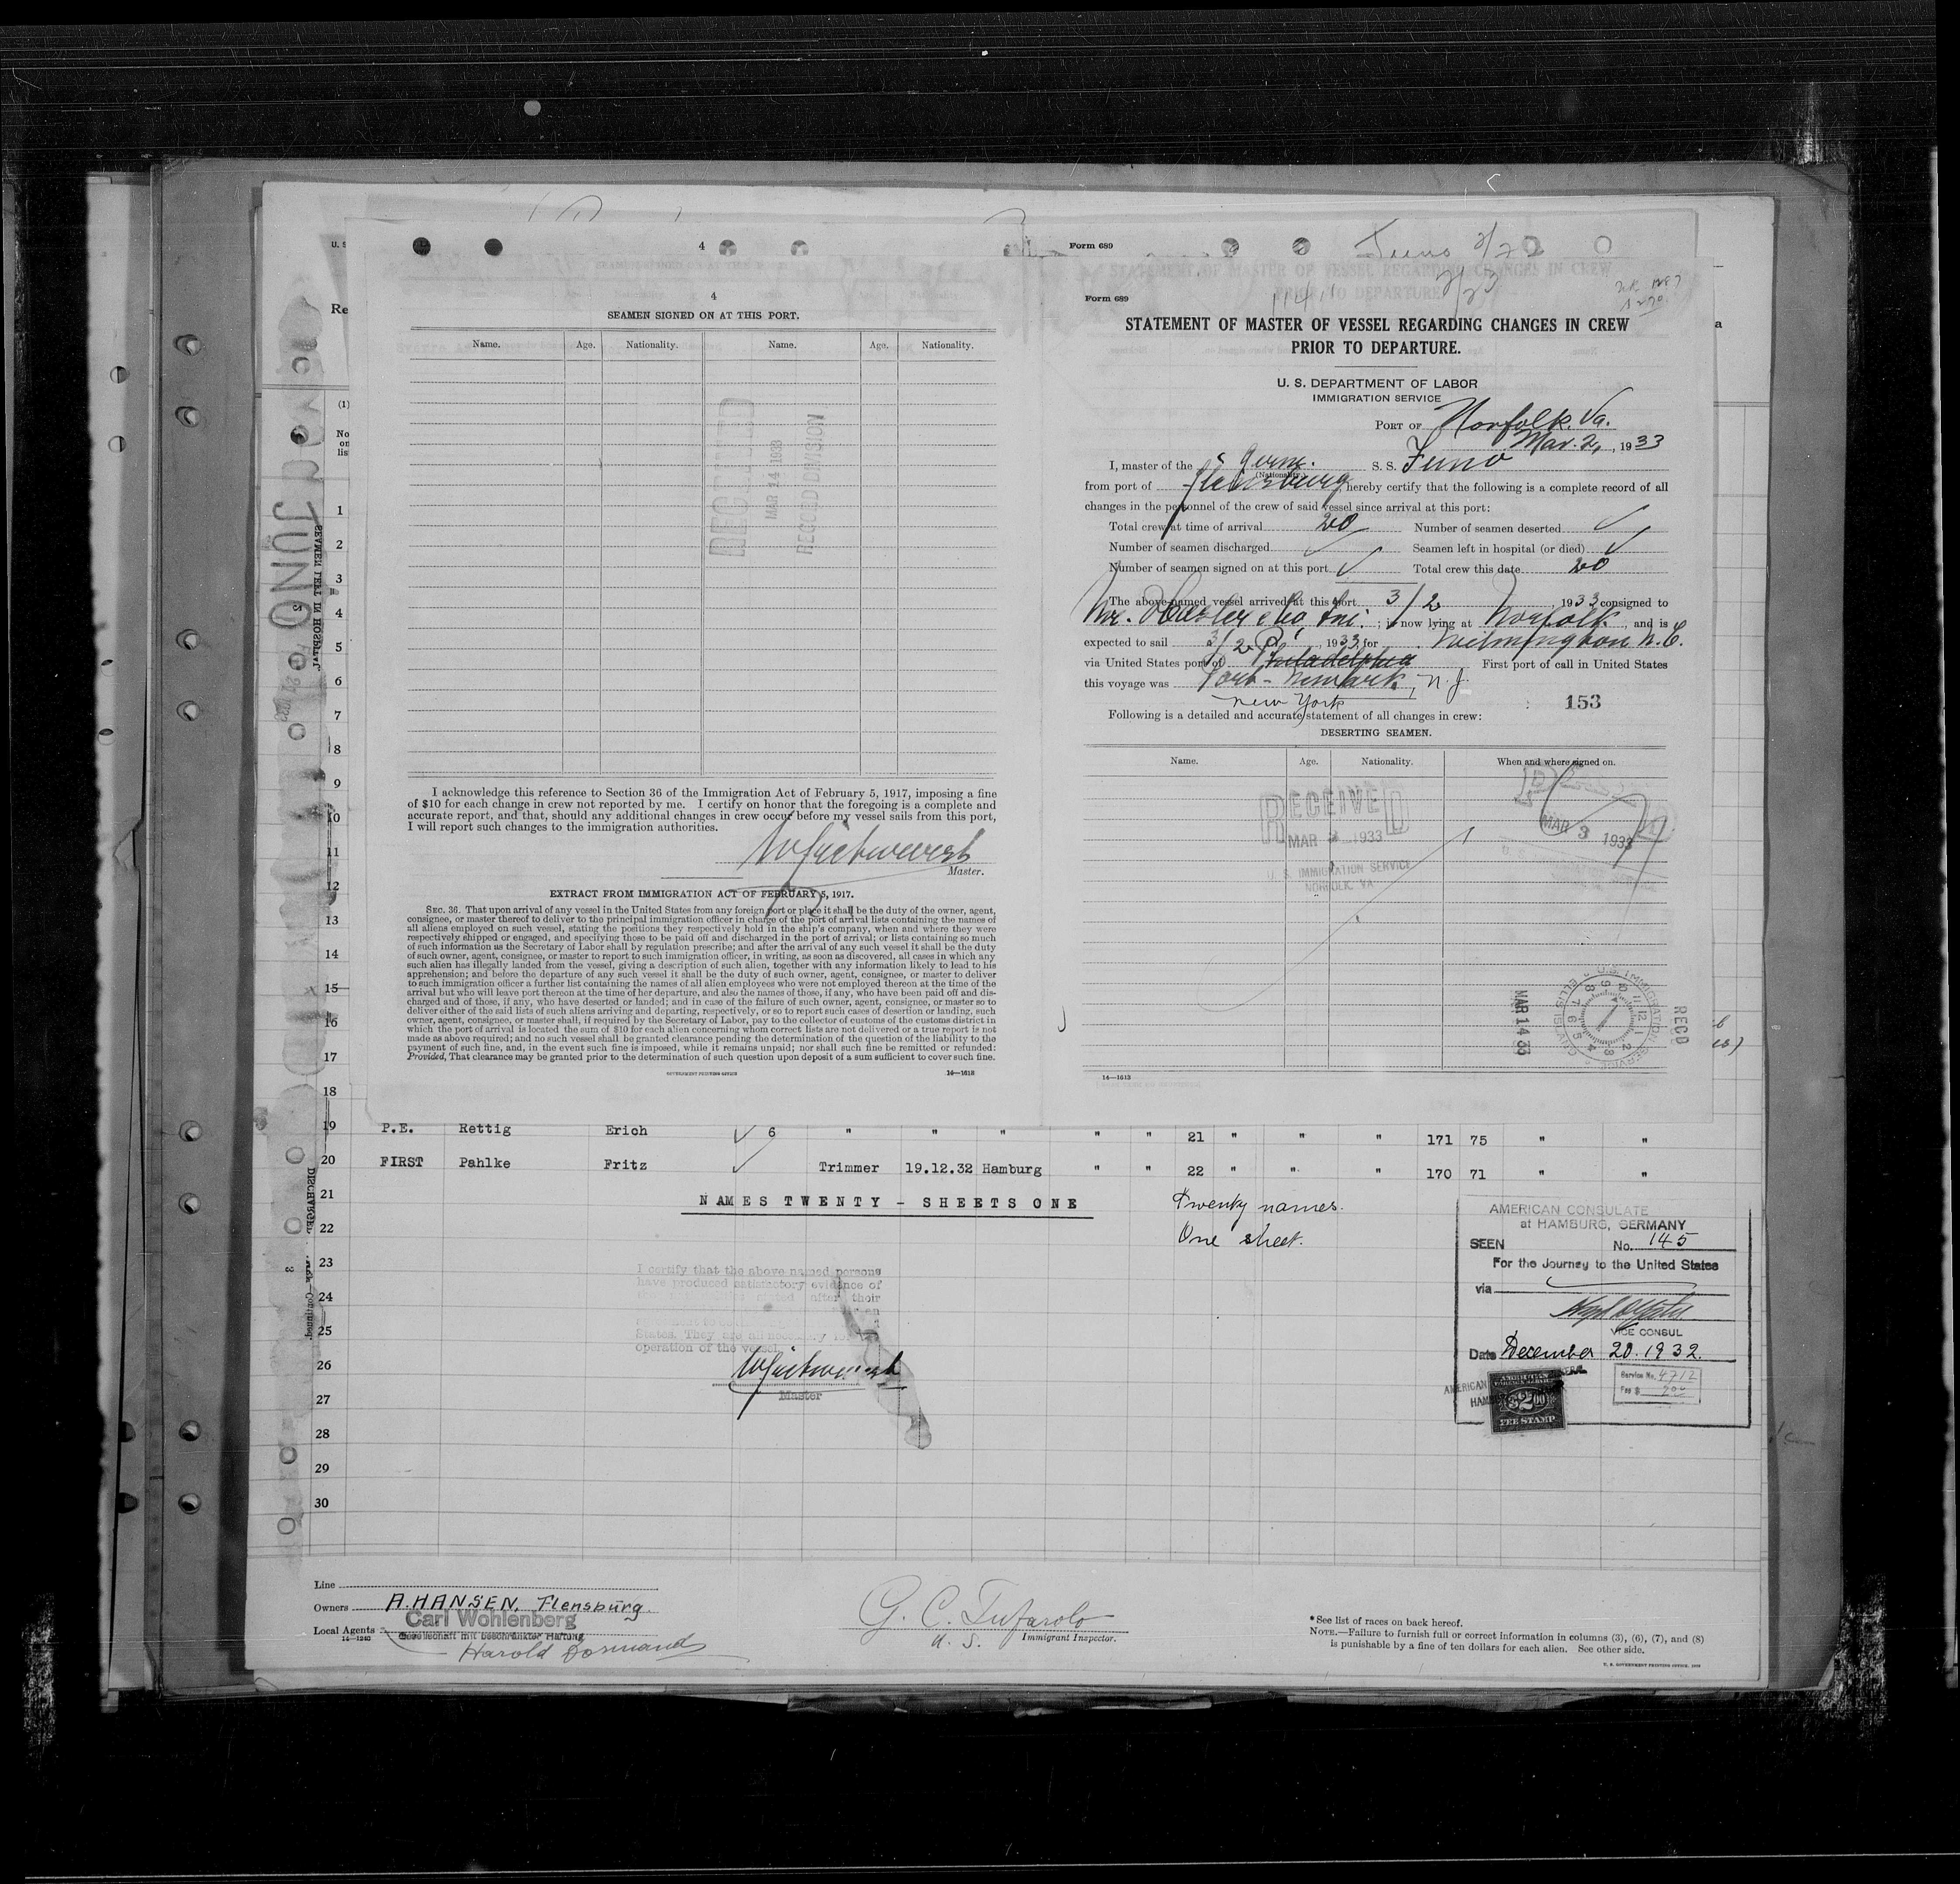 4
SEAMEN SIGNED ON AT THIS PORT.
Name. Age. Nationality. Name. Age. Nationality.
RECEIVED
MAR 14 1933
RECORD DIVISION
I acknowledge this reference to Section 36 of the Immigration Act of February 5, 1917, imposing a fine
of $10 for each change in crew not reported by me. I certify on honor that the foregoing is a complete and
accurate report, and that, should any additional changes in crew occur before my vessel sails from this port,
I will report such changes to the immigration authorities.
Master.
EXTRACT FROM IMMIGRATION ACT OF FEBRUARY 5, 1917.
SEC. 36. That upon arrival of any vessel in the United States from any foreign port or place it shall be the duty of the owner, agent,
consignee, or master thereof to deliver to the principal immigration officer in charge of the port of arrival lists containing the names of
all aliens employed on such vessel, stating the positions they respectively hold in the ship's company, when and where they were
respectively shipped or engaged, and specifying those to be paid off and discharged in the port of arrival; or lists containing so much
of such information as the Secretary of Labor shall by regulation prescribe; and after the arrival of any such vessel it shall be the duty
of such owner, agent, consignee, or master to report to such immigration officer, in writing, as soon as discovered, all cases in which any
such alien has illegally landed from the vessel, giving a description of such alien, together with any information likely to lead to his
apprehension; and before the departure of any such vessel it shall be the duty of such owner, agent, consignee, or master to deliver
to such immigration officer a further list containing the names of all alien employees who were not employed thereon at the time of the
arrival but who will leave port thereon at the time of her departure, and also the names of those, if any, who have been paid off and dis-
charged and of those, if any, who have deserted or landed; and in case of the failure of such owner, agent, consignee, or master so to
deliver either of the said lists of such aliens arriving and departing, respectively, or so to report such cases of desertion or landing, such
owner, agent, consignee, or master shall, if required by the Secretary of Labor, pay to the collector of customs of the customs district in
which the port of arrival is located the sum of $10 for each alien concerning whom correct lists are not delivered or a true report is not
made as above required; and no such vessel shall be granted clearance pending the determination of the question of the liability to the
payment of such fine, and, in the event such fine is imposed, while it remains unpaid; nor shall such fine be remitted or refunded:
Provided, That clearance may be granted prior to the determination of such question upon deposit of a sum sufficient to cover such fine.
GOVERNMENT PRINTING OFFICE 14—1613
4
Form 689
Juno
Form 689
STATEMENT OF MASTER OF VESSEL REGARDING CHANGES IN CREW
PRIOR TO DEPARTURE.
U. S. DEPARTMENT OF LABOR
IMMIGRATION SERVICE
PORT OF Norfolk, Va.
Mar. 2, 1933
I, master of the Germ. S. S. Juno
(Nationality)
from port of Flensburg, hereby certify that the following is a complete record of all
changes in the personnel of the crew of said vessel since arrival at this port:
Total crew at time of arrival 20 Number of seamen deserted
Number of seamen discharged Seamen left in hospital (or died)
Number of seamen signed on at this port Total crew this date 20
The above-named vessel arrived at this port 3/2 1933 consigned to
Hasler & Co. Inc.; is now lying at Norfolk, and is
expected to sail 3/2, 1933, for Wilmington N.C.
via United States port of Philadelphia First port of call in United States
this voyage was Port-Newark, N.J.
New York
153
Following is a detailed and accurate statement of all changes in crew:
DESERTING SEAMEN.
Name. Age. Nationality. When and where signed on.
RECEIVED
MAR 1933
U. S. IMMIGRATION SERVICE
NORFOLK, VA
MAR 3 1933
MAR 14 33
U.S. IMMIGRATION SERVICE
ELLIS ISLAND
RECD
14—1613
JUNO
SEAMEN LEFT IN HOSPITAL
(1)
1
2
3
4
5
6
7
8
9
10
11
12
13
14
15
16
17
18
19 P.E. Rettig Erich 6 " " " " " 21 " " " 171 75 " "
20 FIRST Pahlke Fritz Trimmer 19.12.32 Hamburg " " 22 " " " 170 71 " "
21 NAMES TWENTY - SHEETS ONE Twenty names.
22 One sheet.
23
24
25
26
27
28
29
30
I certify that the above named persons
have produced satisfactory evidence of
after their
States. They are all necessary
operation of the vessel.
Master
AMERICAN CONSULATE
at HAMBURG, GERMANY
SEEN No. 145
For the Journey to the United States
via
VICE CONSUL
Date December 20. 1932.
Service No. 4712
Fee $
AMERICAN
$2.00
FEE STAMP
Line
Owners A. HANSEN, Flensburg.
Local Agents Carl Wohlenberg
Gesellschaft mit beschränkter Haftung
14—1240
Harold Dormand
G. C. Tufarolo
U. S. Immigrant Inspector.
*See list of races on back hereof.
NOTE.—Failure to furnish full or correct information in columns (3), (6), (7), and (8)
is punishable by a fine of ten dollars for each alien. See other side.